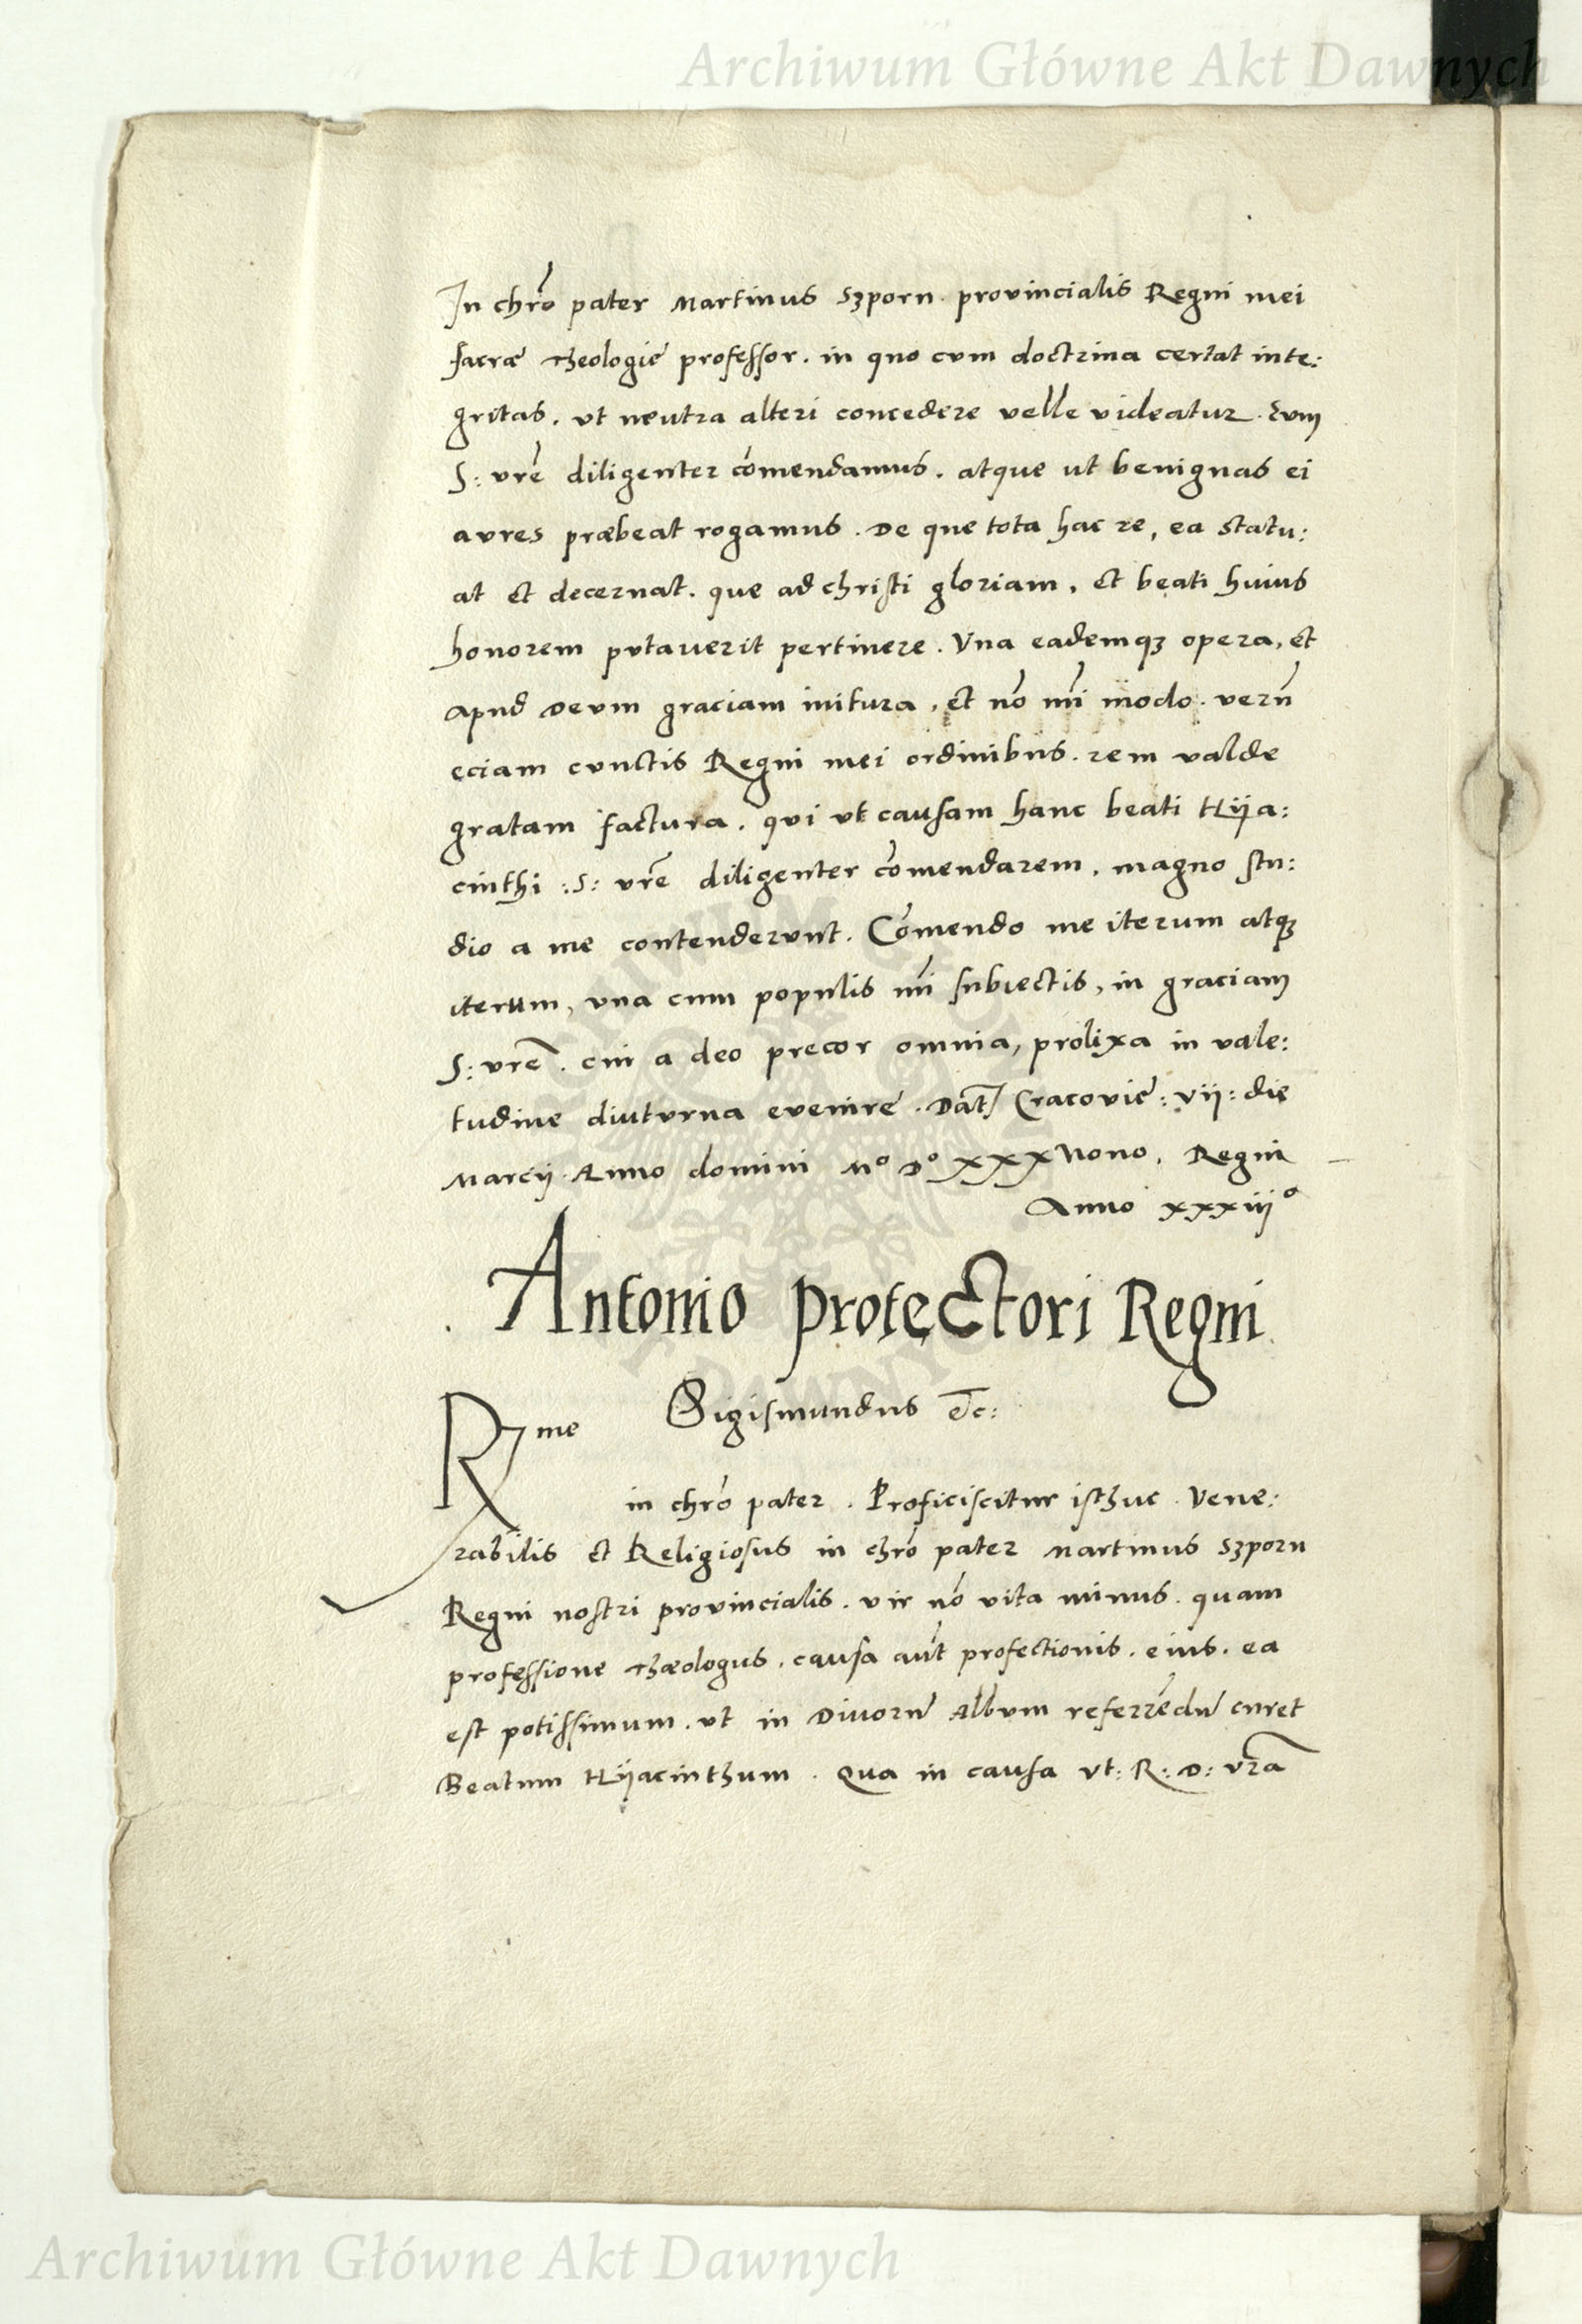 Archiwum Główne Akt Dawnych
In chro pater Martinus Szporn. provincialis Regni mei
sacræ Theologie professor. in quo cum doctrina certat inte:
gritas. ut neutra alteri concedere velle videatur. Eum
S: vre diligenter comendamus. atque ut benignas ei
aures præbeat rogamus. De que tota hac re, ea statu:
at et decernat. que ad christi gloriam, et beati huius
honorem putaverit pertinere. Una eademq3 opera, et
apud Deum graciam initura, et no mi modo. veru
eciam cunctis Regni mei ordinibus. rem valde
gratam factura. qui ut causam hanc beati Hija:
cinthi :S: vre diligenter comendarem, magno stu:
dio a me contenderunt. Comendo me iterum atq3
iterum, una cum populis mi subiectis, in graciam
S: vre. cui a deo precor omnia, prolixa in vale:
tudine diuturna evenire. Dat Cracovie: vij: die
Marcij. Anno domini Mo Do xxxNono, Regni
Anno xxxiijo
Antonio Protectori Regni
Sigismundus etc:
Rme
in chro pater. Proficiscitur isthuc. Vene:
rabilis et Religiosus in chro pater Martinus Szporn
Regni nostri provincialis. vir no vita minus. quam
professione Thæologus. causa aut profectionis. eius. ea
est potissimum. ut in Divoru Album referredu curet
Beatum Hijacinthum. Qua in causa ut: R: D: vra
Archiwum Główne Akt Dawnych